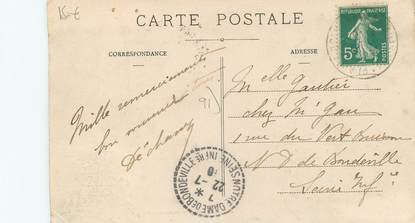 15 €
CARTE POSTALE
CORRESPONDANCE
ADRESSE
5c
POSTES
Mille remerciements
bon souvenir
Déchamp
91
Melle Gautier
chez Mr Gau
1 rue du Vert Buisson
N. D. de Bondeville
Seine Infre
NOTRE DAME DE BONDEVILLE
SEINE INFRE
22-7